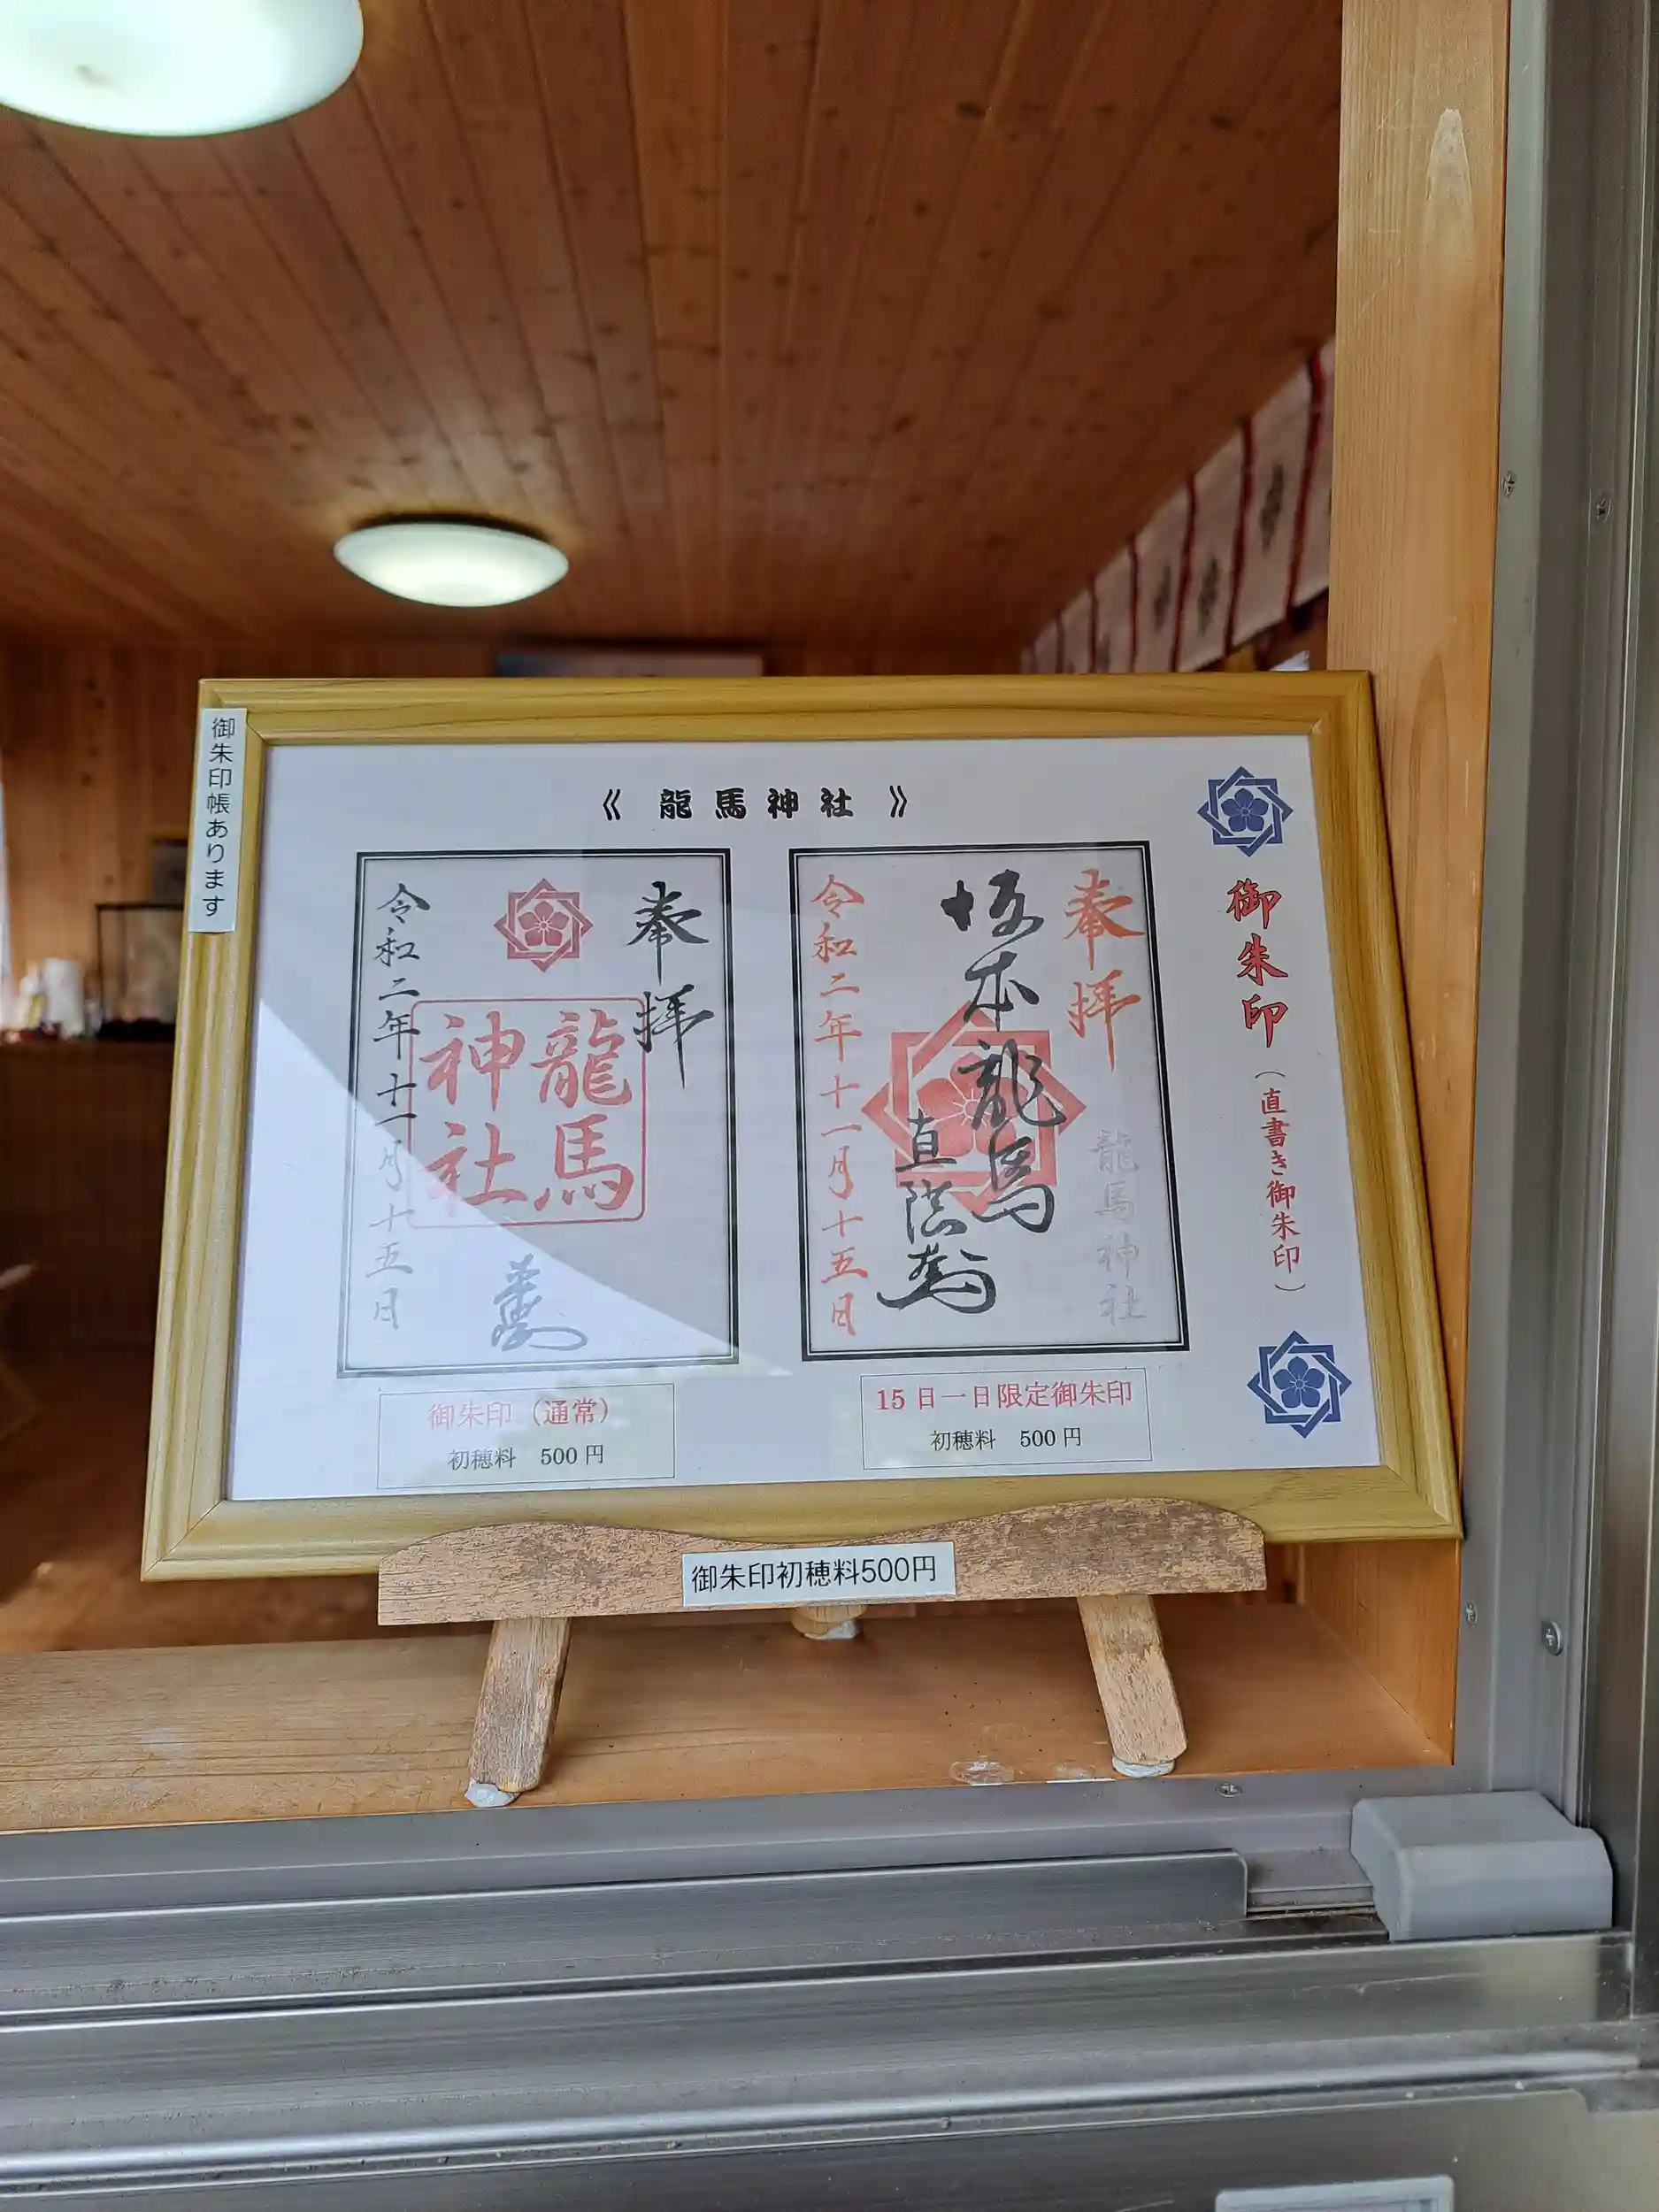 御朱印帳あります
《 龍馬神社 》
御朱印
(直書き御朱印)
奉拝
龍馬神社
坂本龍馬
直陰
令和二年十一月十五日
15日一日限定御朱印
初穂料 500円
奉拝
龍馬
神社
令和二年十一月十五日
御朱印(通常)
初穂料 500円
御朱印初穂料500円